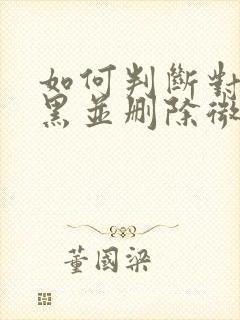 如何判斷對
黑並刪除微
董國梁